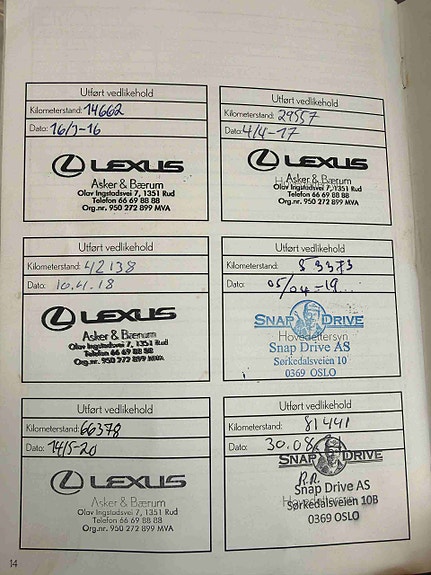 Utført vedlikehold
Kilometerstand: 14662
Dato: 16/3-16
LEXUS
Asker & Bærum
Olav Ingstadsvei 7, 1351 Rud
Telefon 66 69 88 88
Org.nr. 950 272 899 MVA
Utført vedlikehold
Kilometerstand: 29557
Dato: 4/4-17
LEXUS
Asker & Bærum
Olav Ingstadsvei 7, 1351 Rud
Telefon 66 69 88 88
Org.nr. 950 272 899 MVA
Utført vedlikehold
Kilometerstand: 42138
Dato: 10.4.18
LEXUS
Asker & Bærum
Olav Ingstadsvei 7, 1351 Rud
Telefon 66 69 88 88
Org.nr. 950 272 899 MVA
Utført vedlikehold
Kilometerstand: 53373
Dato: 05/04-19...
SNAP DRIVE
Hovedettersyn
Snap Drive AS
Sørkedalsveien 10
0369 OSLO
Utført vedlikehold
Kilometerstand: 66378
Dato: 14/5-20
LEXUS
Asker & Bærum
Olav Ingstadsvei 7, 1351 Rud
Telefon 66 69 88 88
Org.nr. 950 272 899 MVA
Utført vedlikehold
Kilometerstand: 81441
Dato: 30.08
SNAP DRIVE
Snap Drive AS
Sørkedalsveien 10B
0369 OSLO
14